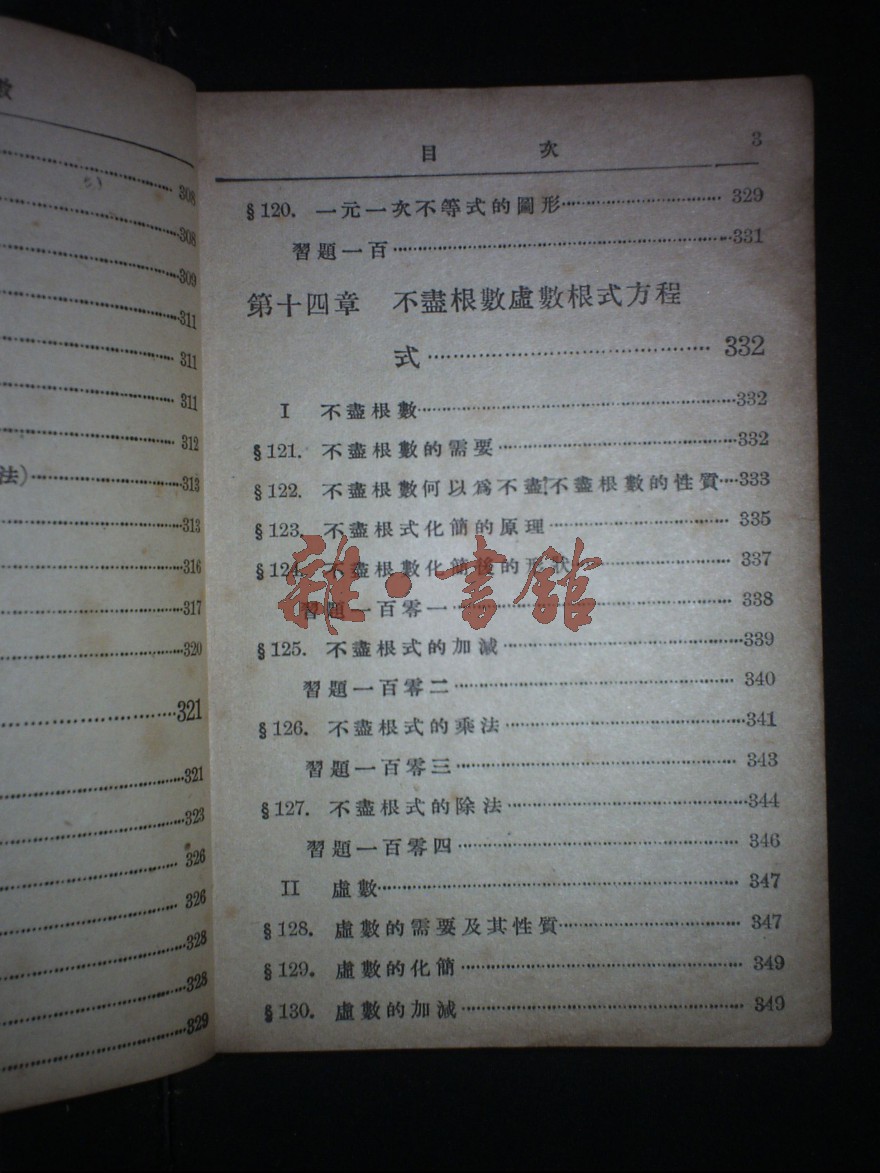 數
308
308
309
311
311
311
312
法)……313
313
316
317
320
321
321
323
326
326
328
328
329
目 次 3
§120. 一元一次不等式的圖形……329
習題一百……331
第十四章 不盡根數虛數根式方程
式……332
I 不盡根數……332
§121. 不盡根數的需要……332
§122. 不盡根數何以爲不盡 不盡根數的性質……333
§123. 不盡根式化簡的原理……335
§124. 不盡根數化簡後的形狀……337
習題一百零一……338
§125. 不盡根式的加減……339
習題一百零二……340
§126. 不盡根式的乘法……341
習題一百零三……343
§127. 不盡根式的除法……344
習題一百零四……346
II 虛數……347
§128. 虛數的需要及其性質……347
§129. 虛數的化簡……349
§130. 虛數的加減……349
雜·書館